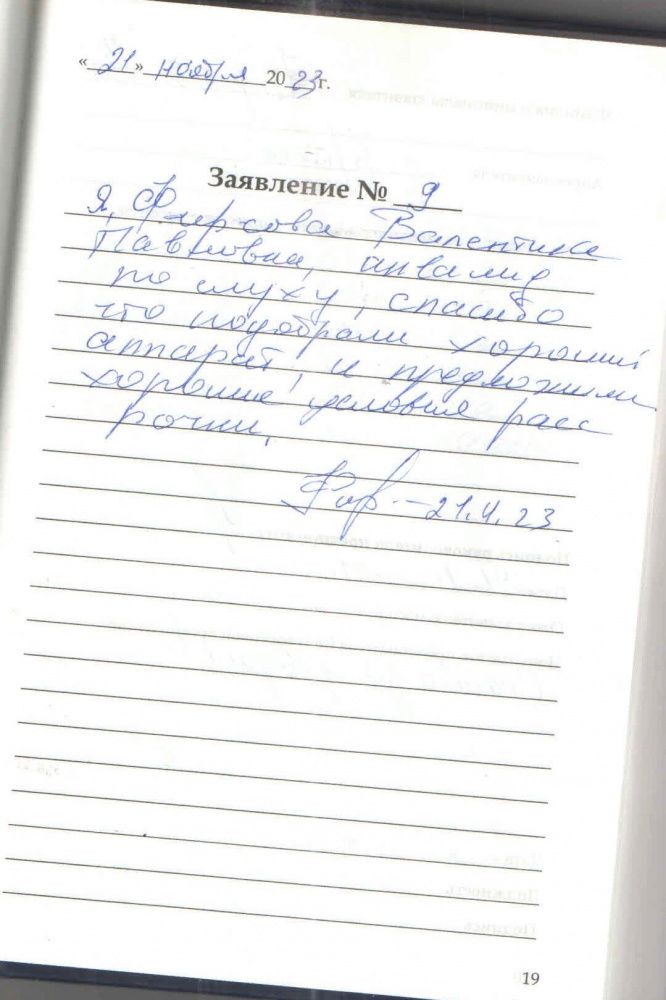 « 21 » ноября 20 23 г.
Заявление № 9
Я, Фирсова Валентина
Павловна, инвалид
по слуху, спасибо
что подобрали хороший
аппарат, и предложили
хорошие условия расс
рочки.
21.11.23
19